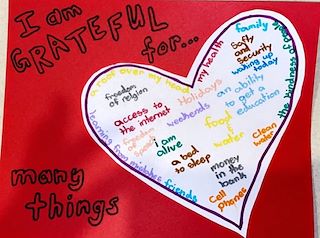 I am
GRATEFUL
for...
many
things
a roof over my head
my health
family
the kindness of people
Safty
and
security
waking up
today
freedom
of religion
Holidays
an ability
to get a
education
access to
the internet
weekends
freedom
of speech
food
water
i am
alive
a bed
to sleep
clean
water
money
in the
bank
Cell
phones
learning from mistakes
friends